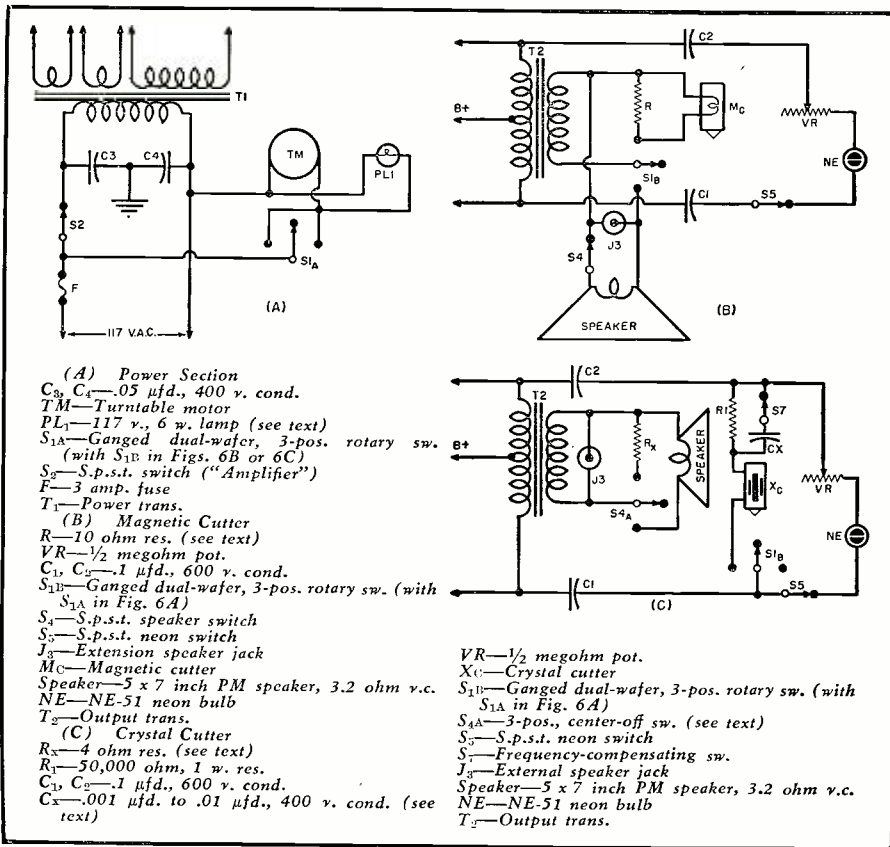 T1
C3
C4
TM
PL1
S2
S1A
F
(A)
117 V.A.C.
C2
T2
B+
R
MC
VR
NE
S1B
C1
S5
J3
S4
SPEAKER
(B)
C2
T2
R1
S7
CX
B+
J3
RX
SPEAKER
XC
VR
S4A
S1B
NE
C1
S5
(C)
(A) Power Section
C3, C4—.05 μfd., 400 v. cond.
TM—Turntable motor
PL1—117 v., 6 w. lamp (see text)
S1A—Ganged dual-wafer, 3-pos. rotary sw.
(with S1B in Figs. 6B or 6C)
S2—S.p.s.t. switch ("Amplifier")
F—3 amp. fuse
T1—Power trans.
(B) Magnetic Cutter
R—10 ohm res. (see text)
VR—1/2 megohm pot.
C1, C2—.1 μfd., 600 v. cond.
S1B—Ganged dual-wafer, 3-pos. rotary sw. (with
S1A in Fig. 6A)
S4—S.p.s.t. speaker switch
S5—S.p.s.t. neon switch
J3—Extension speaker jack
MC—Magnetic cutter
Speaker—5 x 7 inch PM speaker, 3.2 ohm v.c.
NE—NE-51 neon bulb
T2—Output trans.
(C) Crystal Cutter
RX—4 ohm res. (see text)
R1—50,000 ohm, 1 w. res.
C1, C2—.1 μfd., 600 v. cond.
CX—.001 μfd. to .01 μfd., 400 v. cond. (see
text)
VR—1/2 megohm pot.
XC—Crystal cutter
S1B—Ganged dual-wafer, 3-pos. rotary sw. (with
S1A in Fig. 6A)
S4A—3-pos., center-off sw. (see text)
S5—S.p.s.t. neon switch
S7—Frequency-compensating sw.
J3—External speaker jack
Speaker—5 x 7 inch PM speaker, 3.2 ohm v.c.
NE—NE-51 neon bulb
T2—Output trans.